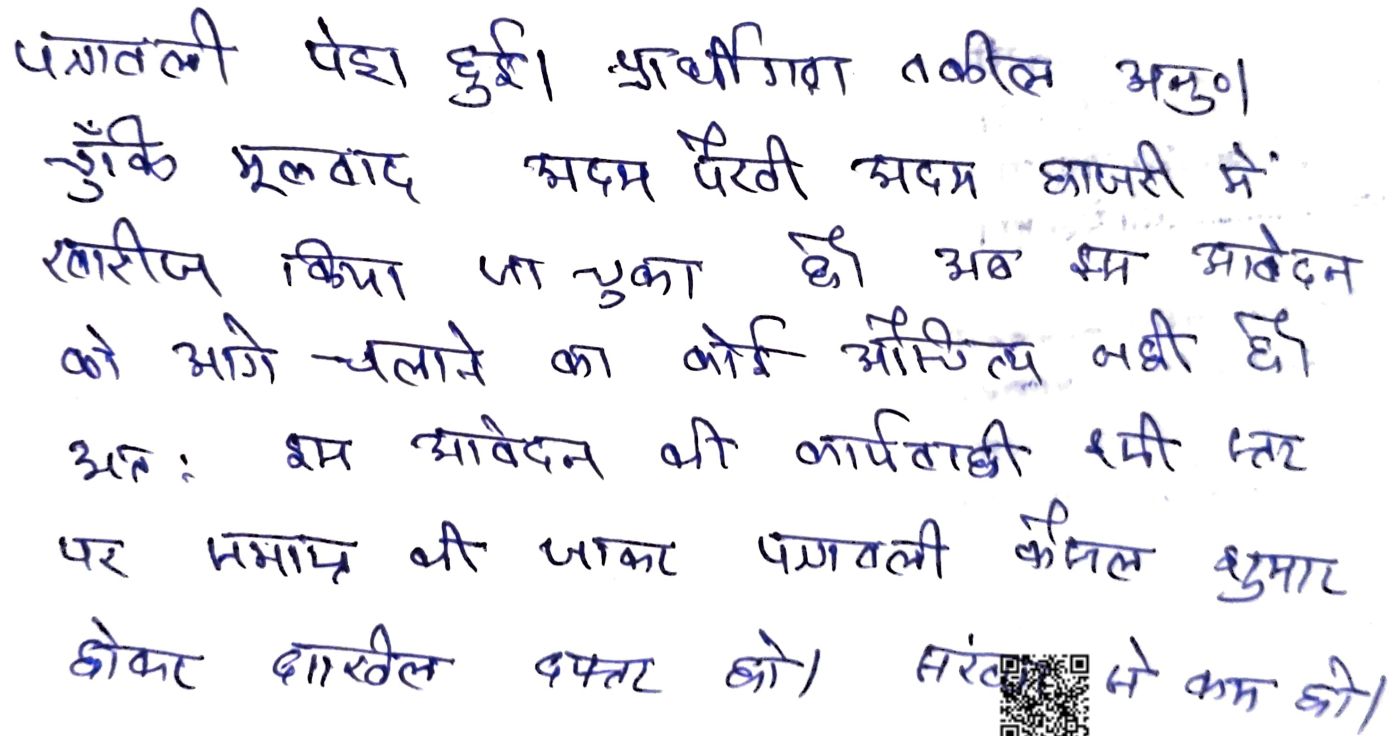 पत्रावली पेश हुई। प्रार्थीगण वकील अनु०।
चुँकि मूलवाद अदम पैरवी अदम हाजरी में
खारीज किया जा चुका है। अब इस आवेदन
को आगे चलाने का कोई औचित्य नहीं है।
अतः इस आवेदन की कार्यवाही इसी स्तर
पर समाप्त की जाकर पत्रावली फैसल शुमार
होकर दाखील दफ्तर हो। से कम हो।